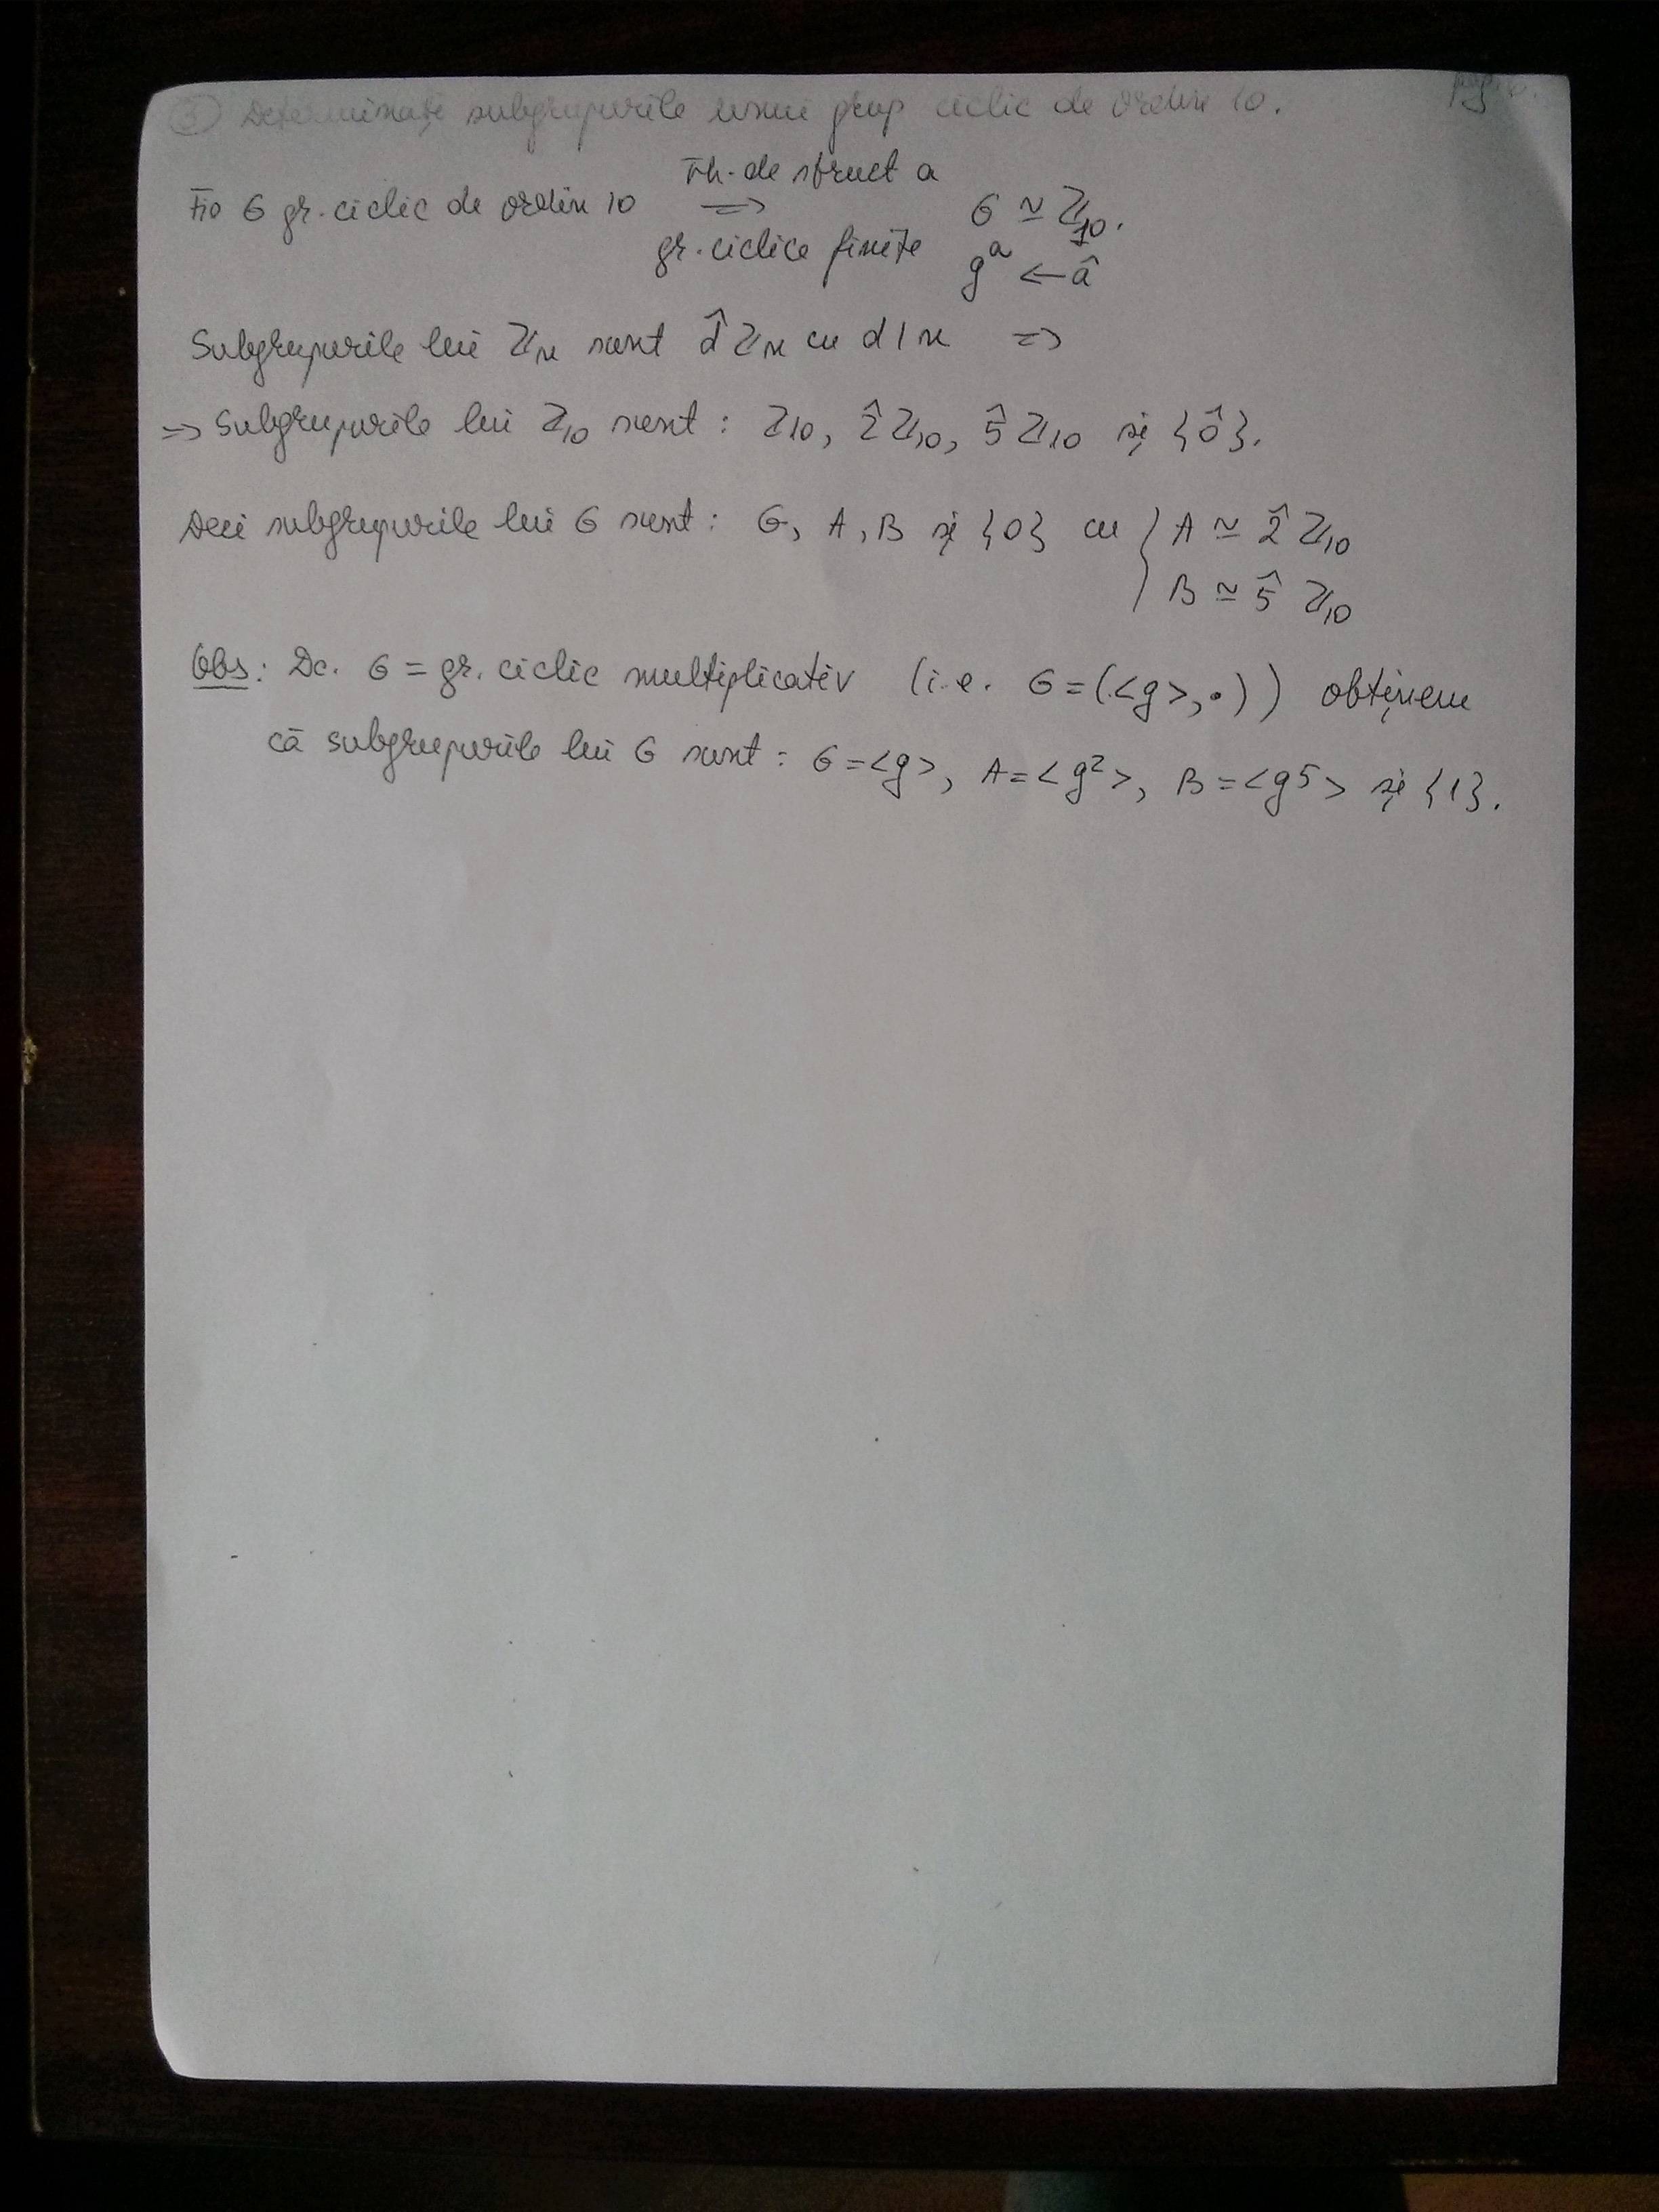 ③ Determinați subgrupurile unui grup ciclic de ordin 10.
Fie G gr. ciclic de ordin 10 ⟹ G ≃ ℤ₁₀.
Th. de struct a
gr. ciclice finite gᵃ ← â
Subgrupurile lui ℤₙ sunt d̂ ℤₙ cu d|n ⟹
⟹ Subgrupurile lui ℤ₁₀ sunt: ℤ₁₀, 2̂ ℤ₁₀, 5̂ ℤ₁₀ și {0̂}.
Deci subgrupurile lui G sunt: G, A, B și {0} cu { A ≃ 2̂ ℤ₁₀
B ≃ 5̂ ℤ₁₀
Obs: Dc. G = gr. ciclic multiplicativ (i.e. G = (<g>, ·)) obținem
că subgrupurile lui G sunt: G = <g>, A = <g²>, B = <g⁵> și {1}.